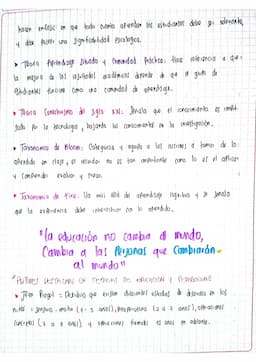 hacen énfasis en que todo cuanto aprendan los estudiantes debe ser relevante,
y debe poseer una significatividad psicológica.
• Teoría Aprendizaje Situado y Comunidad Práctica: Hace referencia a que
la mejora de los resultados académicos depende de que el grupo de
estudiantes funcione como una comunidad de aprendizaje.
• Teoría Constructivismo del siglo XXI: Señala que el conocimiento es
por la tecnología, basando los conocimientos en la investigación.
• Taxonomía de Bloom: Categoriza y agrupa a las acciones a tomar de lo
aprendido en clase, el recordar no es tan importante como lo es el aplicar
y comprender evaluar y crear.
• Taxonomía de Fink: Va más allá del aprendizaje cognitivo y señala
que la experiencia debe con lo aprendido.
"la educación no cambia al mundo,
Cambia a las personas que Cambiarán
al mundo"
• Jean Piaget: en que existen diferentes estadios de desarrollo en los
niños: sensorio-motor (0-2 años), preoperacional (2 a 7 años), operaciones
concretas (7 a 11 años) y operaciones formales 11 años en adelante.